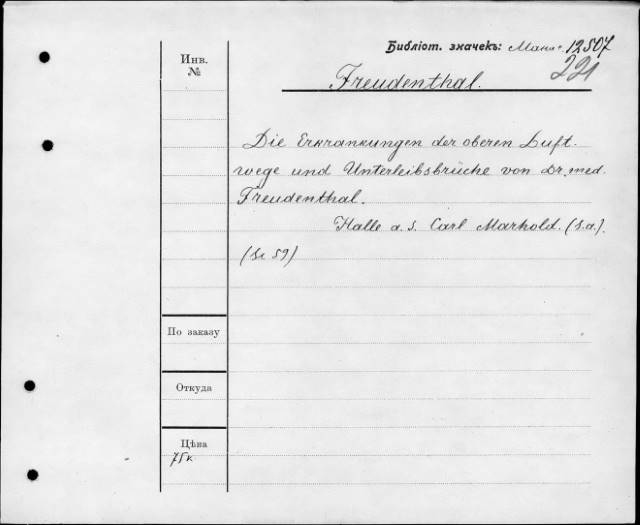 Библіот. значекъ: Макш. 12507
221
Инв.
№
Freudenthal.
Die Erkrankungen der oberen Luft-
wege und Unterleibsbrüche von Dr. med.
Freudenthal.
Halle a. S. Carl Marhold. (s.a.).
По заказу
Откуда
Цѣна
75к